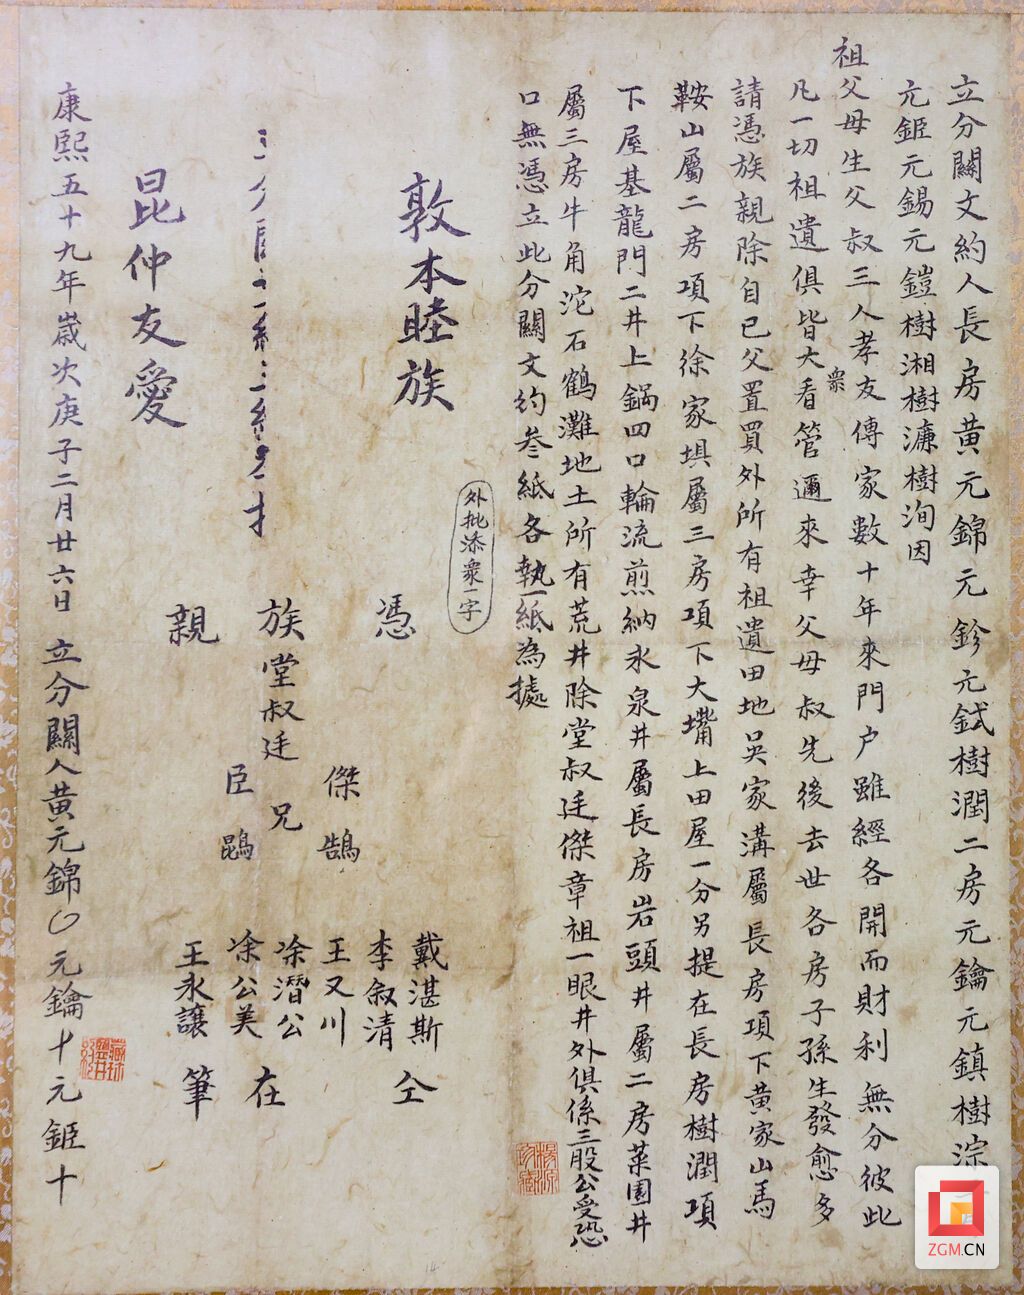 立分關文約人長房黃元錦元鉁元鉽樹潤二房元鑰元鎮樹淙
元鉅元錫元鎧樹湘樹濂樹洵因
祖父母生父叔三人孝友傳家數十年來門户雖經各開而財利無分彼此
凡一切祖遺俱皆大衆看管邇來幸父母叔先後去世各房子孫生發愈多
請憑族親除自已父置買外所有祖遺田地吳家溝屬長房項下黃家山馬
鞍山屬二房項下徐家埧屬三房項下大嘴上田屋一分另提在長房樹潤項
下屋基龍門二井上鍋四口輪流煎納永泉井屬長房岩頭井屬二房菜園井
屬三房牛角沱石鶴灘地土所有荒井除堂叔廷傑章祖一眼井外俱係三股公受恐
口無憑立此分關文約叁紙各執一紙為據
外批添衆一字
敦本睦族
昆仲友愛
憑
族
親
堂叔廷
傑
臣
兄
鵠
鵾
戴湛斯
李叙清
王又川
凃潛公
凃公美
王永讓
仝
在
筆
康熙五十九年歲次庚子二月廿六日 立分關人黃元錦〇元鑰十元鉅十
ZGM.CN